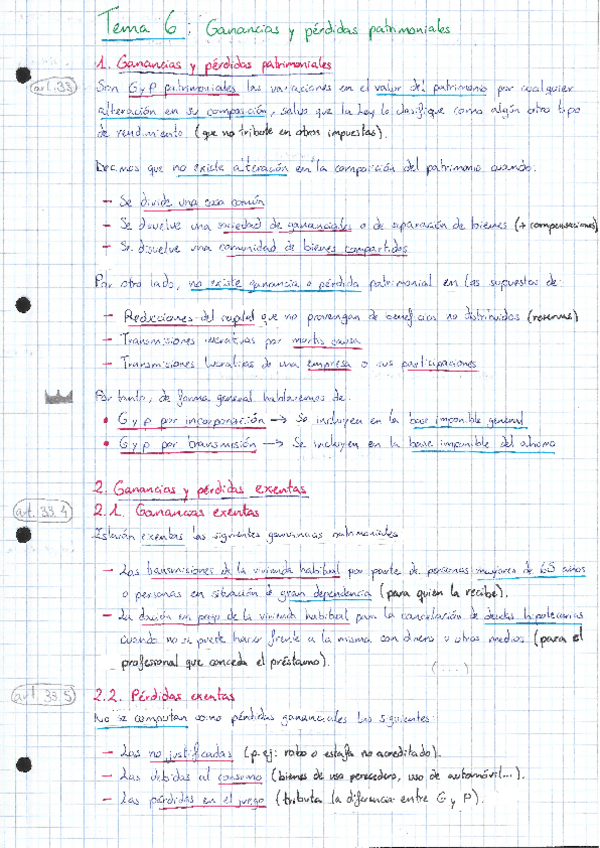 Tema 6: Ganancias y pérdidas patrimoniales
1. Ganancias y pérdidas patrimoniales
art. 33
Son G y P patrimoniales las variaciones en el valor del patrimonio por cualquier
alteración en su composición, salvo que la Ley lo clasifique como algún otro tipo
de rendimiento (que no tribute en otros impuestos).
Decimos que no existe alteración en la composición del patrimonio cuando:
- Se divide una cosa común
- Se disuelve una sociedad de gananciales o de separación de bienes (+ compensaciones)
- Se disuelve una comunidad de bienes compartidos
Por otro lado, no existe ganancia o pérdida patrimonial en los supuestos de:
- Reducciones del capital que no provengan de beneficios no distribuidos (reservas)
- Transmisiones lucrativas por mortis causa
- Transmisiones lucrativas de una empresa o sus participaciones
Por tanto, de forma general hablaremos de:
• G y P por incorporación → Se incluyen en la base imponible general
• G y P por transmisión → Se incluyen en la base imponible del ahorro
2. Ganancias y pérdidas exentas
art. 33.4
2.1. Ganancias exentas
Estarán exentas las siguientes ganancias patrimoniales
- Las transmisiones de la vivienda habitual por parte de personas mayores de 65 años
o personas en situación de gran dependencia (para quien la recibe).
- La dación en pago de la vivienda habitual para la cancelación de deudas hipotecarias
cuando no se puede hacer frente a la misma con dinero u otros medios (para el
profesional que conceda el préstamo).
(...)
art. 33.5
2.2. Pérdidas exentas
No se computan como pérdidas gananciales las siguientes:
- Las no justificadas (p. ej: robo o estafa no acreditado).
- Las debidas al consumo (bienes de uso perecedero, uso de automóvil...).
- Las pérdidas en el juego (tributa la diferencia entre G y P).